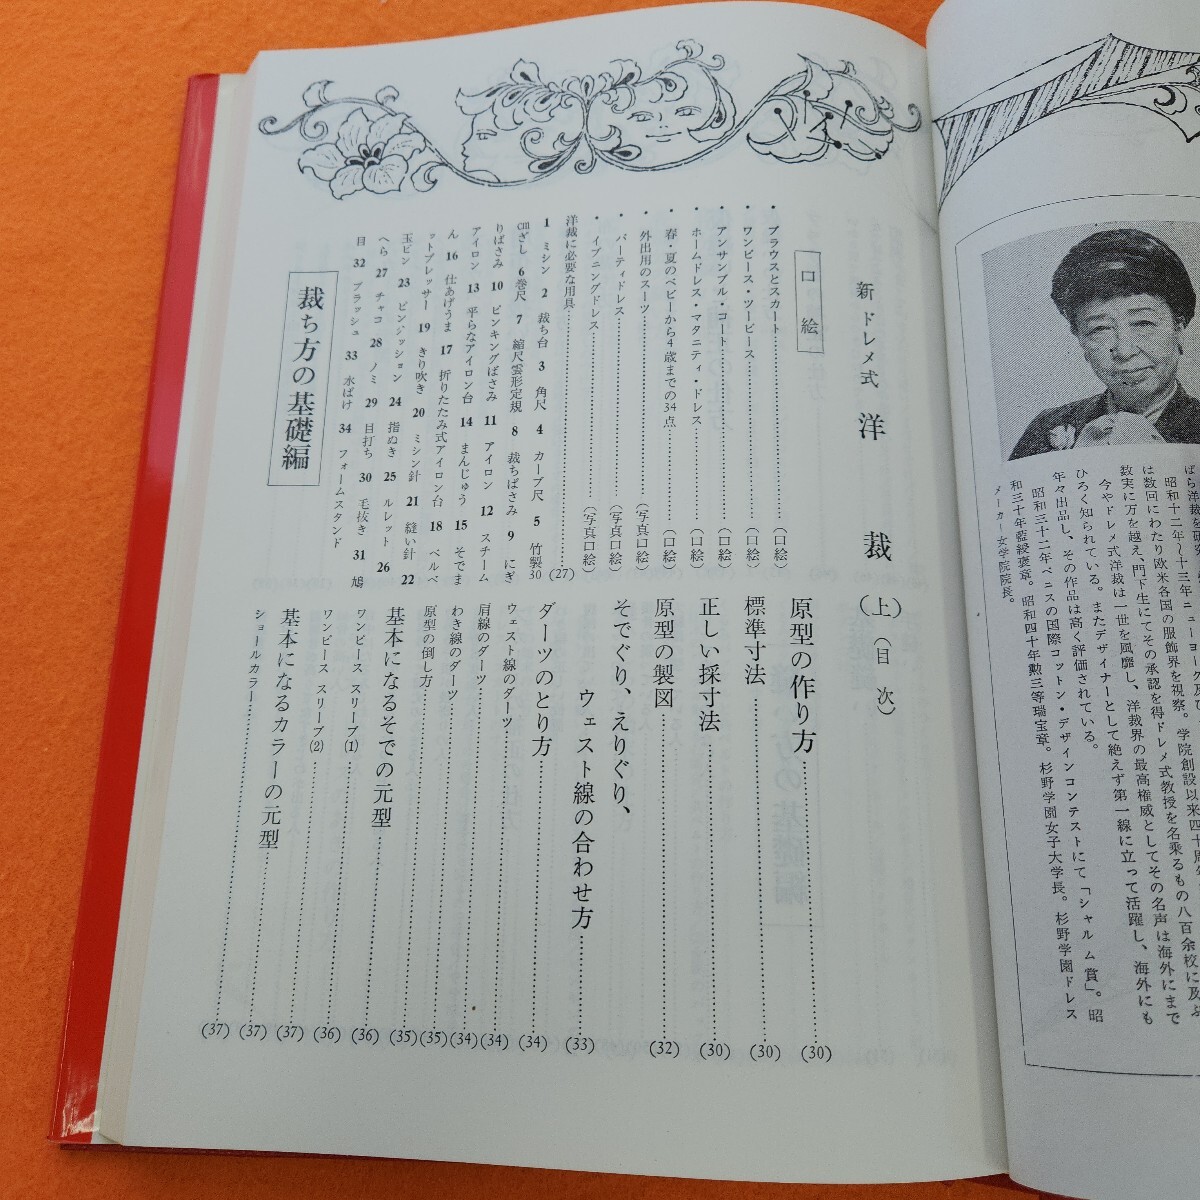 新ドレメ式 洋裁(上)(目次)
口絵
・ブラウスとスカート……(口絵)
・ワンピース・ツーピース……(口絵)
・アンサンブル・コート……(口絵)
・ホームドレス・マタニティ・ドレス……(口絵)
・春・夏のベビーから4歳までの34点……(口絵)
・外出用のスーツ……(写真口絵)
・パーティドレス……(写真口絵)
・イブニングドレス……(写真口絵)
洋裁に必要な用具……(27)
1 ミシン 2 裁ち台 3 角尺 4 カーブ尺 5 竹製30
㎝ざし 6 巻尺 7 縮尺雲形定規 8 裁ちばさみ 9 にぎ
りばさみ 10 ピンキングばさみ 11 アイロン 12 スチーム
アイロン 13 平らなアイロン台 14 まんじゅう 15 そでま
ん 16 仕あげうま 17 折りたたみ式アイロン台 18 ベルベ
ットプレッサー 19 きり吹き 20 ミシン針 21 縫い針 22
玉ピン 23 ピンクッション 24 指ぬき 25 ルレット 26
へら 27 チャコ 28 ノミ 29 目打ち 30 毛抜き 31 鳩
目 32 ブラッシュ 33 水ばけ 34 フォームスタンド
裁ち方の基礎編
原型の作り方……(30)
標準寸法……(30)
正しい採寸法……(30)
原型の製図……(32)
そでぐり、えりぐり、
ウェスト線の合わせ方……(33)
ダーツのとり方……(34)
ウェスト線のダーツ……(34)
肩線のダーツ……(34)
わき線のダーツ……(35)
原型の倒し方……(35)
基本になるそでの元型……(36)
ワンピース スリーブ(1)……(36)
ワンピース スリーブ(2)……(37)
基本になるカラーの元型……(37)
ショールカラー……(37)
ばら洋裁を研究
昭和十二年〜十三年ニューヨーク及び
は数回にわたり欧米各国の服飾界を視察。学院創設以来四十周年
数実に万を越え、門下生にてその承認を得ドレメ式教授を名乗るもの八百余校に及ぶ
今やドレメ式洋裁は一世を風靡し、洋裁界の最高権威としてその名声は海外にまで
ひろく知られている。またデザイナーとして絶えず第一線に立って活躍し、海外にも
年々出品し、その作品は高く評価されている。
昭和三十二年ベニスの国際コットン・デザインコンテストにて「シャルム賞」。昭
和三十年藍綬褒章。昭和四十年勲三等瑞宝章。杉野学園女子大学長。杉野学園ドレス
メーカー女学院院長。